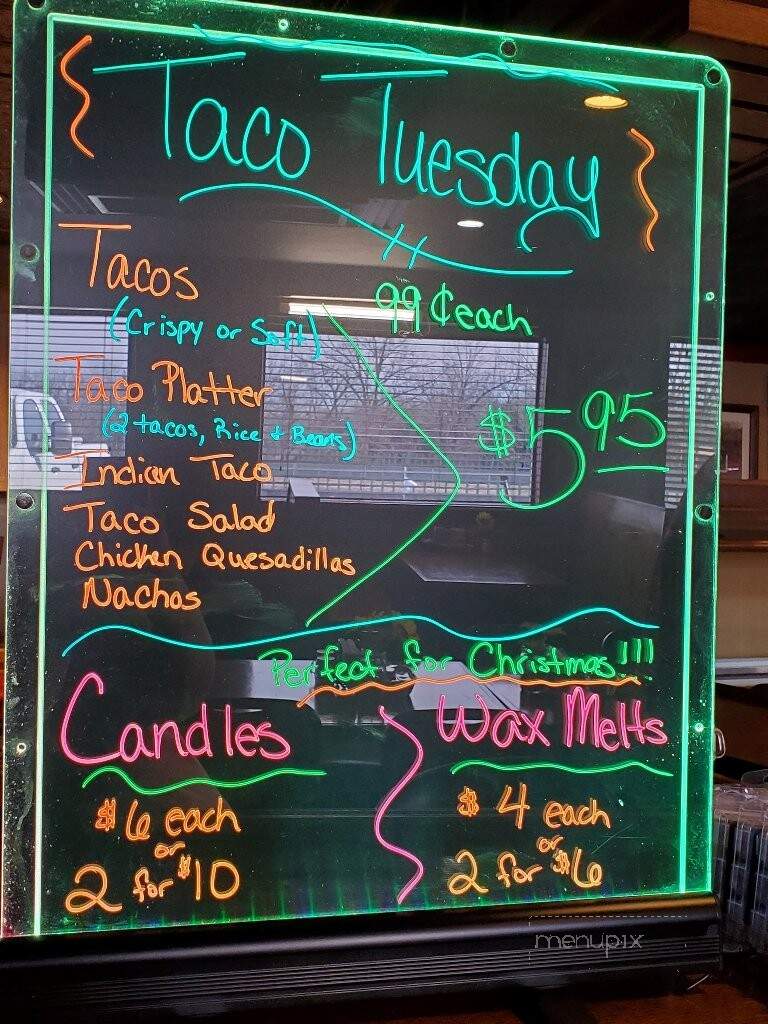 Taco Tuesday
Tacos 99¢ each
(Crispy or Soft)
Taco Platter
(2 tacos, Rice & Beans)
$5 95
Indian Taco
Taco Salad
Chicken Quesadillas
Nachos
Perfect for Christmas!!!
Candles
$6 each
or
2 for $10
Wax Melts
$4 each
or
2 for $6
menupix